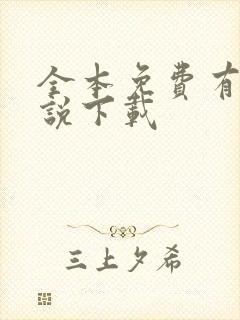 全本免費有
說下載
三上夕希